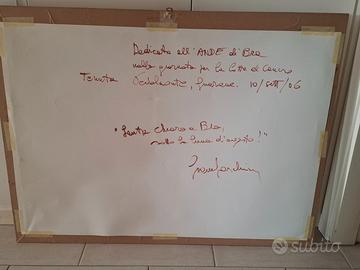 Dedicato all'ANDE di Bra
nella giornata per la lotta al Cancro
Tenuta Guarene, 10/sett/06
"Santa Chiara a Bra,
sotto la luna d'argento!"
subito